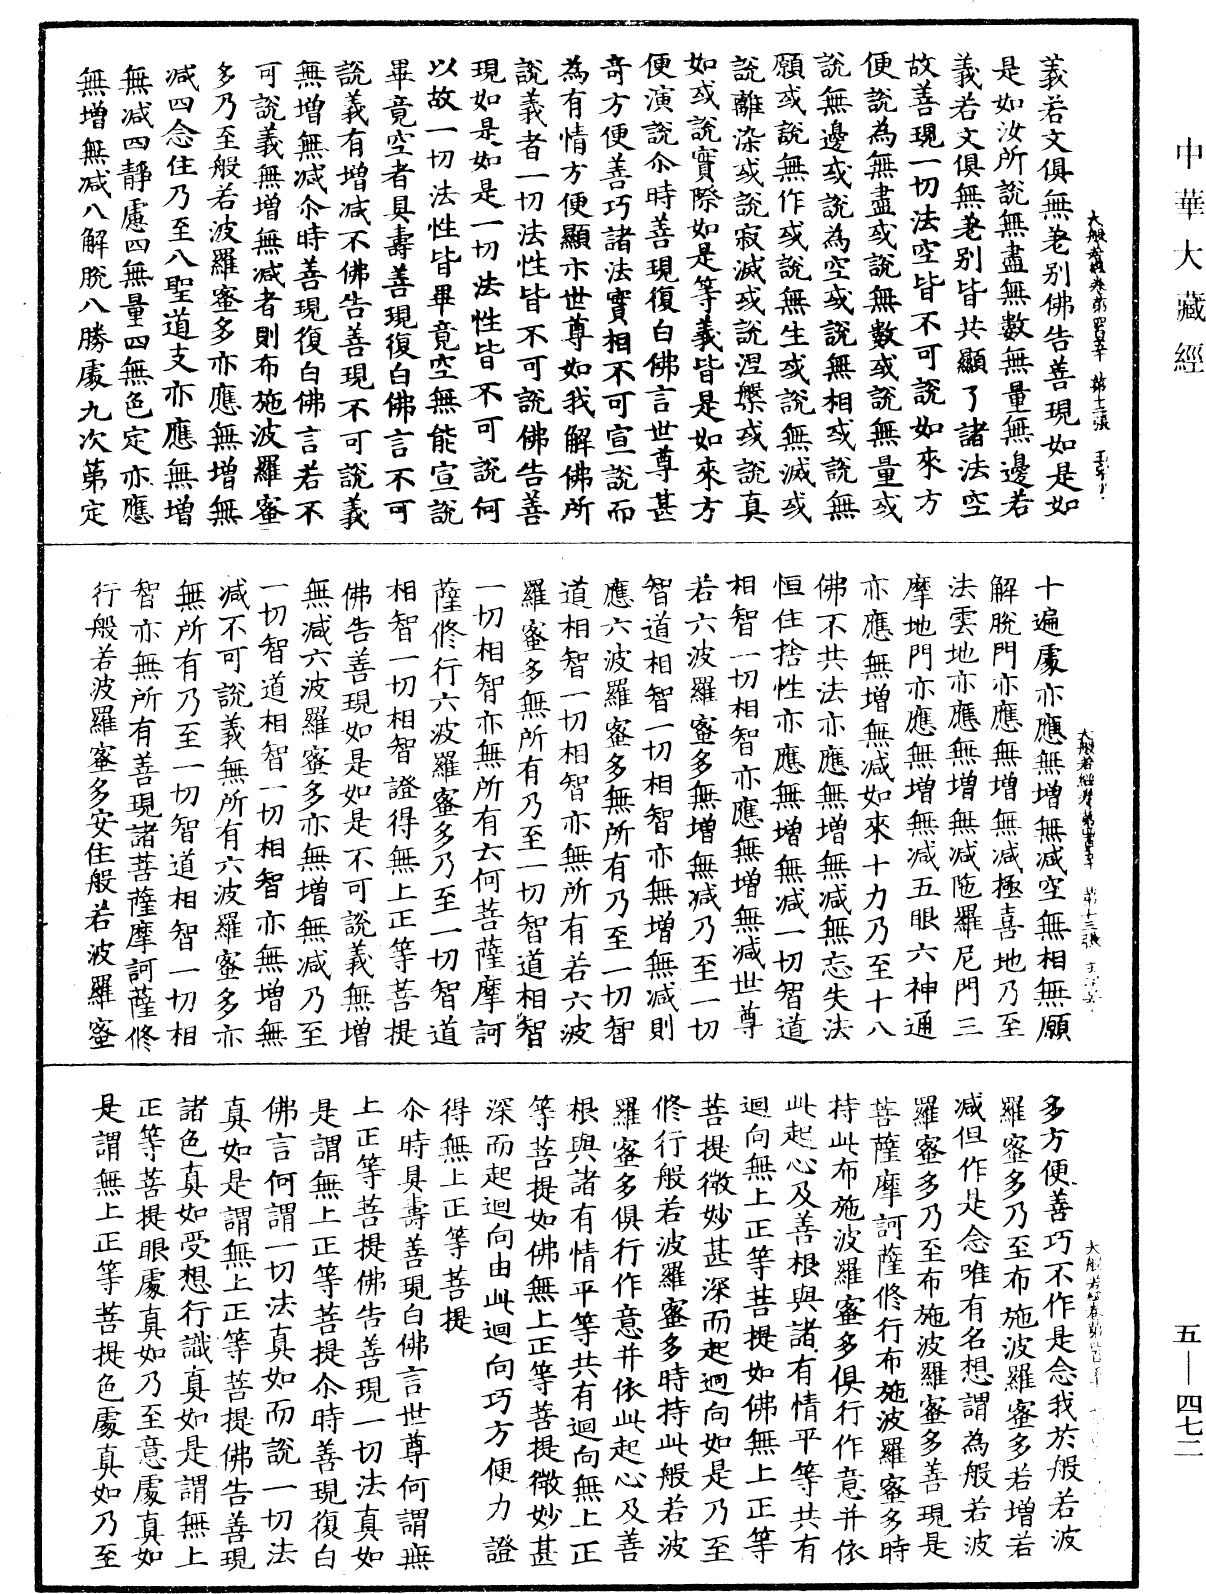 中華大藏經
義若文俱無差別佛告善現如是如
是如汝所說無盡無數無量無邊若
義若文俱無差別皆共顯了諸法空
故善現一切法空皆不可說如來方
便說為無盡或說無數或說無量或
說無邊或說為空或說無相或說無
願或說無作或說無生或說無滅或
說離染或說寂滅或說涅槃或說真
如或說實際如是等義皆是如來方
便演說尒時善現復白佛言世尊甚
奇方便善巧諸法實相不可宣說而
為有情方便顯示世尊如我解佛所
說義者一切法性皆不可說佛告善
現如是如是一切法性皆不可說何
以故一切法性皆畢竟空無能宣說
畢竟空者具壽善現復白佛言不可
說義有增減不佛告善現不可說義
無增無減尒時善現復白佛言若不
可說義無增無減者則布施波羅蜜
多乃至般若波羅蜜多亦應無增無
減四念住乃至八聖道支亦應無增
無減四靜慮四無量四無色定亦應
無增無減八解脫八勝處九次第定
十遍處亦應無增無減空無相無願
解脫門亦應無增無減極喜地乃至
法雲地亦應無增無減陁羅尼門三
摩地門亦應無增無減五眼六神通
亦應無增無減如來十力乃至十八
佛不共法亦應無增無減無忘失法
恒住捨性亦應無增無減一切智道
相智一切相智亦應無增無減世尊
若六波羅蜜多無增無減乃至一切
智道相智一切相智亦無增無減則
應六波羅蜜多無所有乃至一切智
道相智一切相智亦無所有若六波
羅蜜多無所有乃至一切智道相智
一切相智亦無所有云何菩薩摩訶
薩修行六波羅蜜多乃至一切智道
相智一切相智證得無上正等菩提
佛告善現如是如是不可說義無增
無減六波羅蜜多亦無增無減乃至
一切智道相智一切相智亦無增無
減不可說義無所有六波羅蜜多亦
無所有乃至一切智道相智一切相
智亦無所有善現諸菩薩摩訶薩修
行般若波羅蜜多安住般若波羅蜜
多方便善巧不作是念我於般若波
羅蜜多乃至布施波羅蜜多若增若
減但作是念唯有名想謂為般若波
羅蜜多乃至布施波羅蜜多善現是
菩薩摩訶薩修行布施波羅蜜多時
持此布施波羅蜜多俱行作意并依
此起心及善根與諸有情平等共有
迴向無上正等菩提如佛無上正等
菩提微妙甚深而起迴向如是乃至
修行般若波羅蜜多時持此般若波
羅蜜多俱行作意并依此起心及善
根與諸有情平等共有迴向無上正
等菩提如佛無上正等菩提微妙甚
深而起迴向由此迴向巧方便力證
得無上正等菩提
尒時具壽善現白佛言世尊何謂無
上正等菩提佛告善現一切法真如
是謂無上正等菩提尒時善現復白
佛言何謂一切法真如而說一切法
真如是謂無上正等菩提佛告善現
諸色真如受想行識真如是謂無上
正等菩提眼處真如乃至意處真如
是謂無上正等菩提色處真如乃至
五—四七二